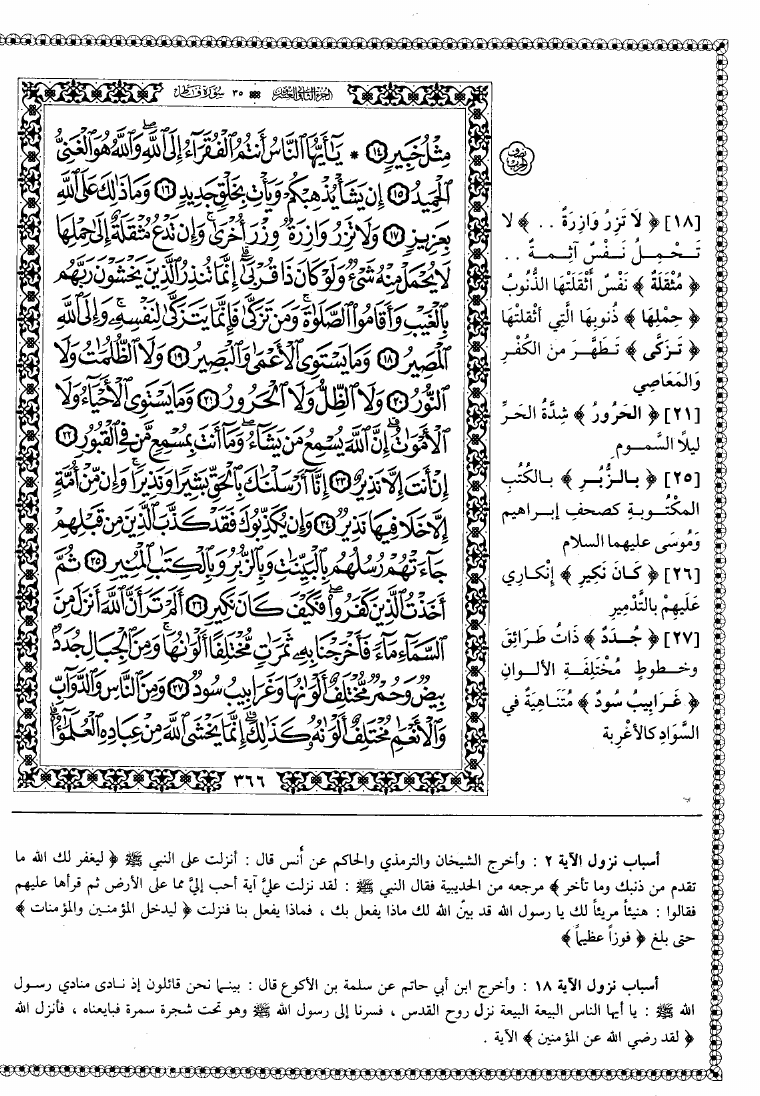 الجزء الثاني والعشرون ٣٥ سورة فاطر
مِثْلُ خَبِيرٍ ١٤ * يَٰٓأَيُّهَا ٱلنَّاسُ أَنتُمُ ٱلْفُقَرَآءُ إِلَى ٱللَّهِ ۖ وَٱللَّهُ هُوَ ٱلْغَنِىُّ
ٱلْحَمِيدُ ١٥ إِن يَشَأْ يُذْهِبْكُمْ وَيَأْتِ بِخَلْقٍ جَدِيدٍ ١٦ وَمَا ذَٰلِكَ عَلَى ٱللَّهِ
بِعَزِيزٍ ١٧ وَلَا تَزِرُ وَازِرَةٌ وِزْرَ أُخْرَىٰ ۚ وَإِن تَدْعُ مُثْقَلَةٌ إِلَىٰ حِمْلِهَا
لَا يُحْمَلْ مِنْهُ شَىْءٌ وَلَوْ كَانَ ذَا قُرْبَىٰٓ ۗ إِنَّمَا تُنذِرُ ٱلَّذِينَ يَخْشَوْنَ رَبَّهُم
بِٱلْغَيْبِ وَأَقَامُوا۟ ٱلصَّلَوٰةَ ۚ وَمَن تَزَكَّىٰ فَإِنَّمَا يَتَزَكَّىٰ لِنَفْسِهِۦ ۚ وَإِلَى ٱللَّهِ
ٱلْمَصِيرُ ١٨ وَمَا يَسْتَوِى ٱلْأَعْمَىٰ وَٱلْبَصِيرُ ١٩ وَلَا ٱلظُّلُمَٰتُ وَلَا
ٱلنُّورُ ٢٠ وَلَا ٱلظِّلُّ وَلَا ٱلْحَرُورُ ٢١ وَمَا يَسْتَوِى ٱلْأَحْيَآءُ وَلَا
ٱلْأَمْوَٰتُ ۚ إِنَّ ٱللَّهَ يُسْمِعُ مَن يَشَآءُ ۖ وَمَآ أَنتَ بِمُسْمِعٍ مَّن فِى ٱلْقُبُورِ ٢٢
إِنْ أَنتَ إِلَّا نَذِيرٌ ٢٣ إِنَّآ أَرْسَلْنَٰكَ بِٱلْحَقِّ بَشِيرًا وَنَذِيرًا ۚ وَإِن مِّنْ أُمَّةٍ
إِلَّا خَلَا فِيهَا نَذِيرٌ ٢٤ وَإِن يُكَذِّبُوكَ فَقَدْ كَذَّبَ ٱلَّذِينَ مِن قَبْلِهِمْ
جَآءَتْهُمْ رُسُلُهُم بِٱلْبَيِّنَٰتِ وَبِٱلزُّبُرِ وَبِٱلْكِتَٰبِ ٱلْمُنِيرِ ٢٥ ثُمَّ
أَخَذْتُ ٱلَّذِينَ كَفَرُوا۟ ۖ فَكَيْفَ كَانَ نَكِيرِ ٢٦ أَلَمْ تَرَ أَنَّ ٱللَّهَ أَنزَلَ مِنَ
ٱلسَّمَآءِ مَآءً فَأَخْرَجْنَا بِهِۦ ثَمَرَٰتٍ مُّخْتَلِفًا أَلْوَٰنُهَا ۚ وَمِنَ ٱلْجِبَالِ جُدَدٌۢ
بِيضٌ وَحُمْرٌ مُّخْتَلِفٌ أَلْوَٰنُهَا وَغَرَابِيبُ سُودٌ ٢٧ وَمِنَ ٱلنَّاسِ وَٱلدَّوَآبِّ
وَٱلْأَنْعَٰمِ مُخْتَلِفٌ أَلْوَٰنُهُۥ كَذَٰلِكَ ۗ إِنَّمَا يَخْشَى ٱللَّهَ مِنْ عِبَادِهِ ٱلْعُلَمَٰٓؤُا۟ ۗ
٣٦٦
نصف
الحزب
[١٨] ﴿ لَا تَزِرُ وَازِرَةٌ .. ﴾ لا
تَحْمِلُ نَفْسٌ آثِمَةٌ ..
﴿ مُثْقَلَةٌ ﴾ نَفْسٌ أَثْقَلَتْهَا الذُّنُوبُ
﴿ حِمْلِهَا ﴾ ذُنُوبِهَا الَّتِي أَثْقَلَتْهَا
﴿ تَزَكَّى ﴾ تَطَهَّرَ من الكُفْرِ
وَالمَعَاصِي
[٢١] ﴿ الحَرُورُ ﴾ شِدَّةُ الحَرِّ
ليلًا السَّموم
[٢٥] ﴿ بِالزُّبُرِ ﴾ بالكُتُبِ
المكْتُوبةِ كصحفِ إبراهيم
وَمُوسَى عليهما السلام
[٢٦] ﴿ كَانَ نَكِيرِ ﴾ إنْكاري
عَلَيهِمْ بالتَّدْمِيرِ
[٢٧] ﴿ جُدَدٌ ﴾ ذَاتُ طَرائِقَ
وخطوطٍ مُخْتَلِفَةِ الألوانِ
﴿ غَرَابِيبُ سُودٌ ﴾ مُتَناهِيَةٌ في
السَّوَادِ كالأغْرِبة
أسباب نزول الآية ٢ : وأخرج الشيخان والترمذي والحاكم عن أنس قال : أنزلت على النبي ﷺ ﴿ ليغفر لك الله ما
تقدم من ذنبك وما تأخر ﴾ مرجعه من الحديبية فقال النبي ﷺ : لقد نزلت عليَّ آية أحب إليَّ مما على الأرض ثم قرأها عليهم
فقالوا : هنيئاً مريئاً لك يا رسول الله قد بينّ الله لك ماذا يفعل بك ، فماذا يفعل بنا فنزلت ﴿ ليدخل المؤمنين والمؤمنات ﴾
حتى بلغ ﴿ فوزاً عظيماً ﴾
أسباب نزول الآية ١٨ : وأخرج ابن أبي حاتم عن سلمة بن الأكوع قال : بينما نحن قائلون إذ نادى منادي رسول
الله ﷺ : يا أيها الناس البيعة البيعة نزل روح القدس ، فسرنا إلى رسول الله ﷺ وهو تحت شجرة سمرة فبايعناه ، فأنزل الله
﴿ لقد رضي الله عن المؤمنين ﴾ الآية .